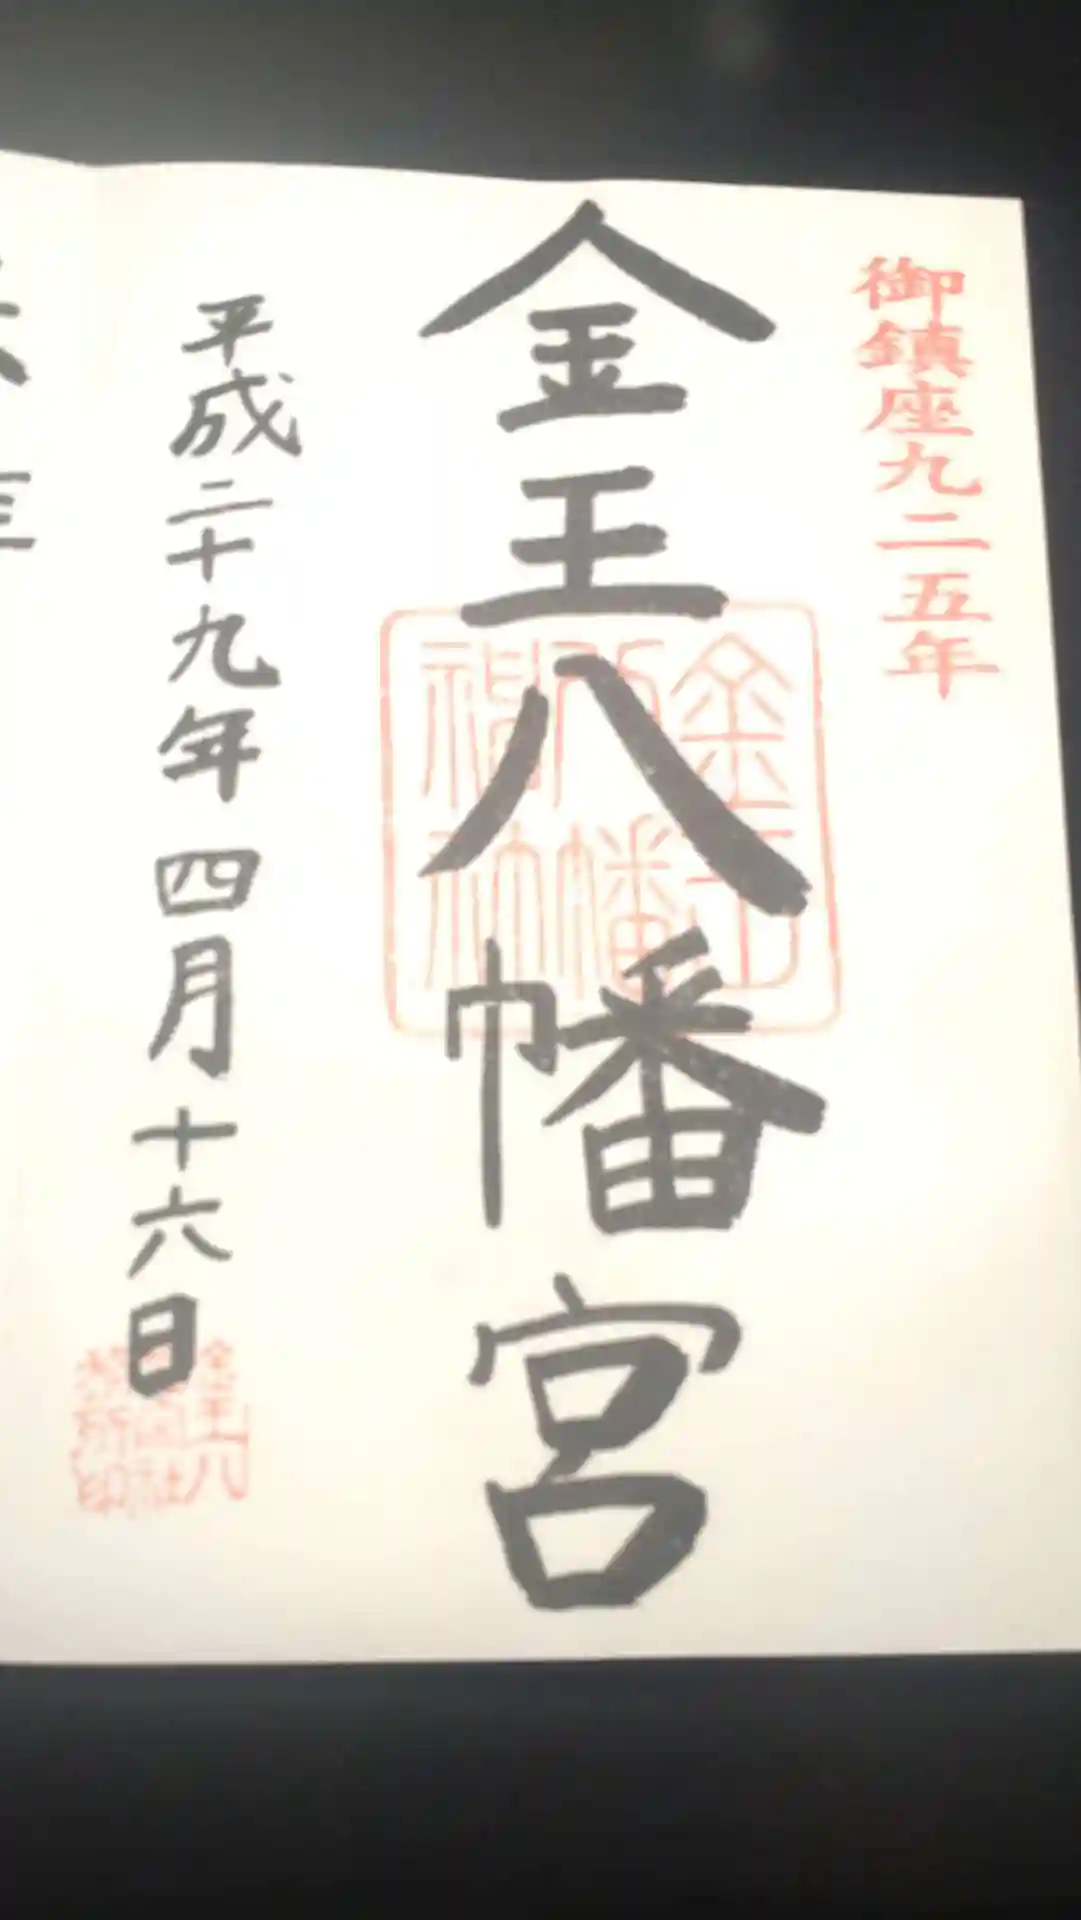 御鎮座九二五年
金王八幡宮
金王
八幡
神社
平成二十九年四月十六日
金王八
社
務所印